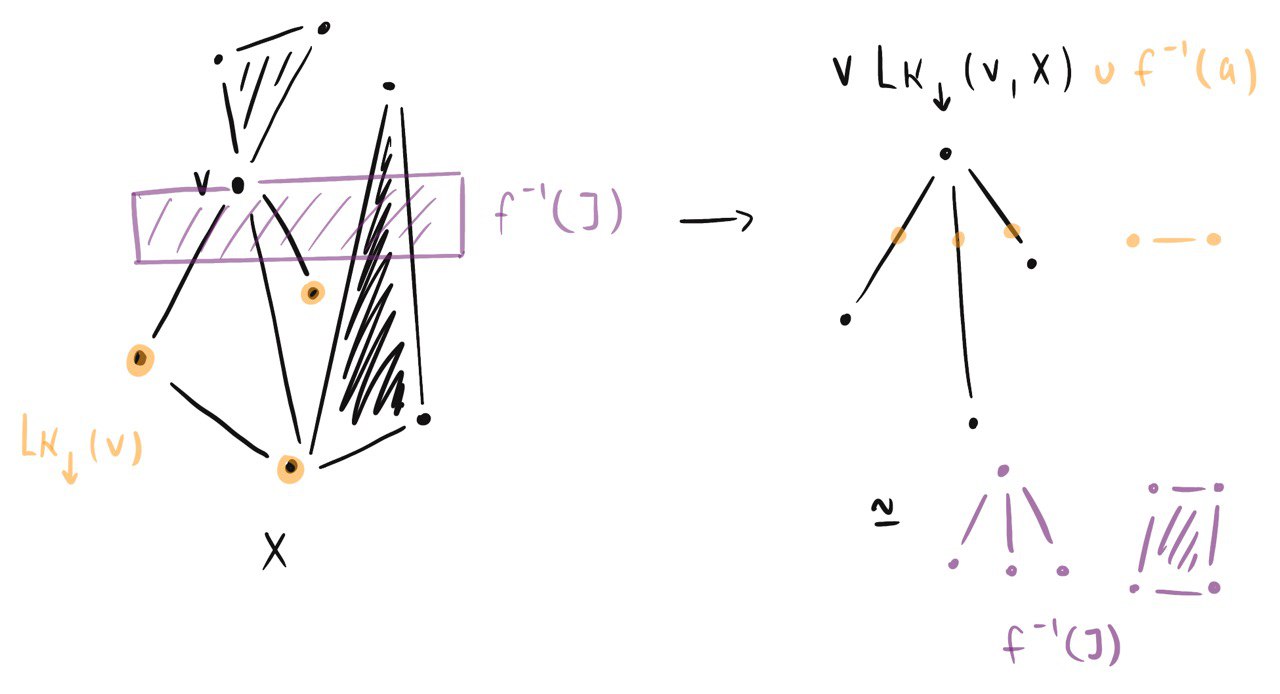 v
f⁻¹(J)
Lk↓(v)
X
→
v Lk↓(v, X) ∪ f⁻¹(a)
≃
f⁻¹(J)